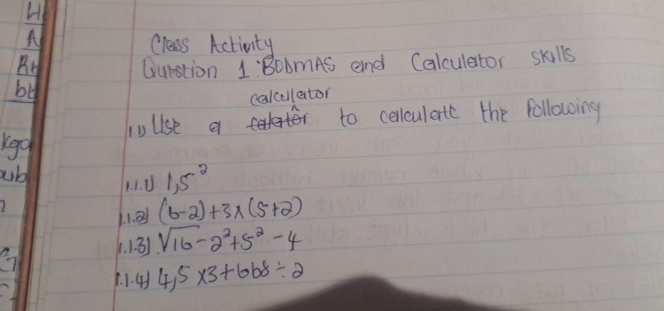 Class Activity
Question 1: BODMAS and Calculator skills
calculator
1.1) Use a to calculate the following
1.1.1) 1,5²
1.1.2) (6-2)+3×(5+2)
1.1.3) √16-2²+5²-4
1.1.4) 4,5×3+668÷2